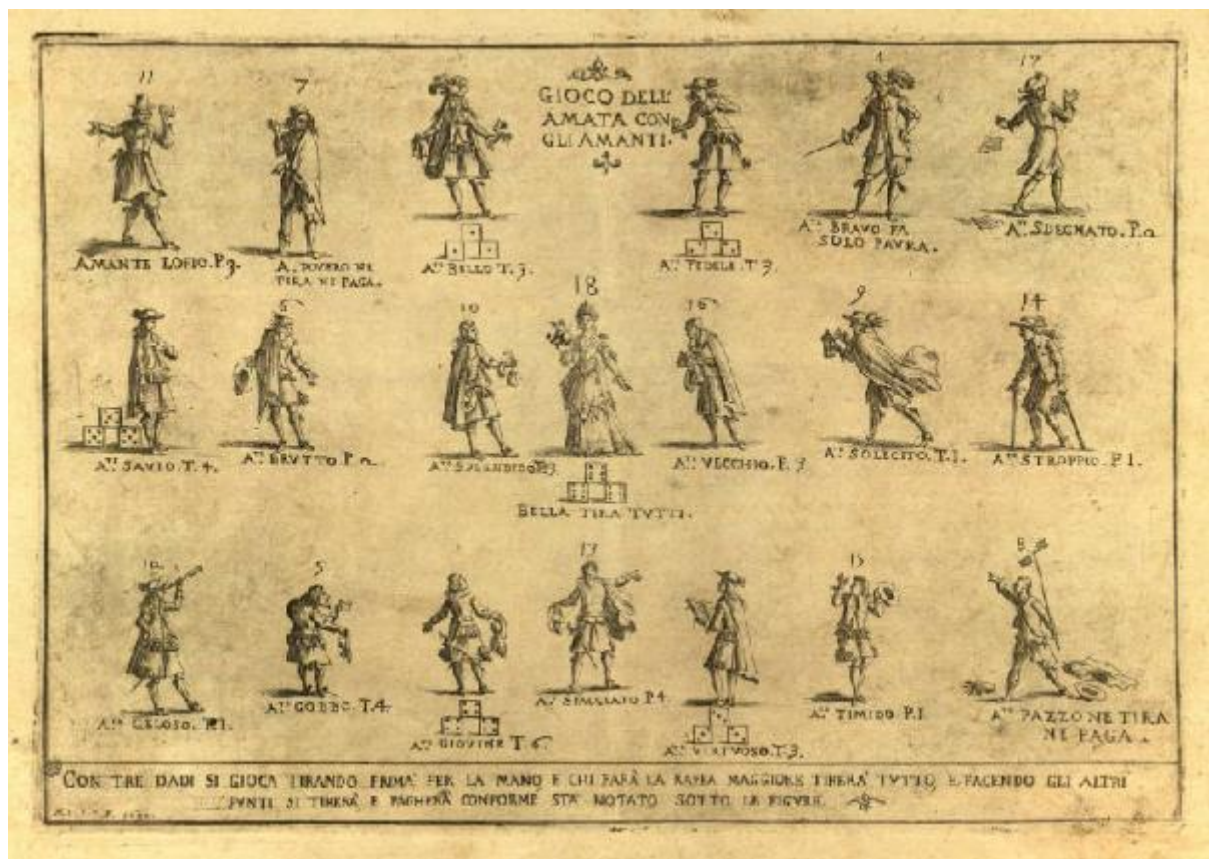 GIOCO DELL'
AMATA CON
GLI AMANTI.
11
7
4
17
AMANTE LOFIO. P. 3.
A. POVERO NE
TIRA NE PAGA.
A.te BELLO T. 3.
A.te FEDELE. T. 3.
A.te BRAVO FA
SOLO PAVRA.
A.te SDEGNATO. P. 2
6
10
18
16
9
14
A.te SAVIO. T. 4.
A.te BRVTTO. P. 2.
A.te SPLENDIDO P. 3
A.te VECCHIO. P. 3
A.te SOLECITO. T. 1.
A.te STROPPIO. P. 1.
BELLA TIRA TVTTI.
12
5
13
15
8
A.te GELOSO. P. 1.
A.te GOBBO. T. 4.
A.te GIOVINE T. 6.
P. 4
A.te VIRTVOSO. T. 3.
A.te TIMIDO. P. 1
A.te PAZZO NE TIRA
NE PAGA.
CON TRE DADI SI GIOCA TIRANDO PRIMA PER LA MANO E CHI FARÀ LA RAFFA MAGGIORE TIRERÀ TVTTO, E FACENDO GLI ALTRI
PVNTI SI TIRERÀ E PAGHERÀ CONFORME STÀ NOTATO SOTTO LE FIGVRE.